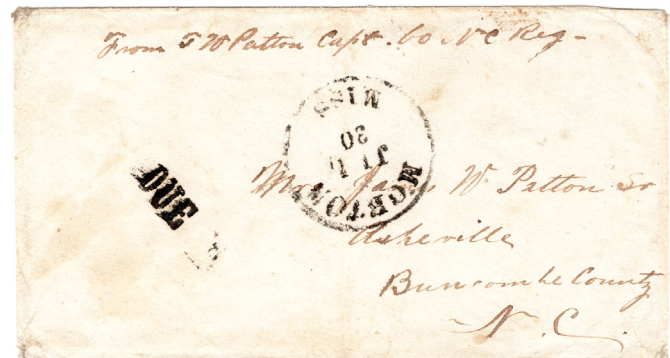 From T W Patton Capt. 60 N C Reg -
MORTON
JUL
20
MISS
DUE
Mr. James W Patton Sr
Asheville
Buncombe County
N. C.